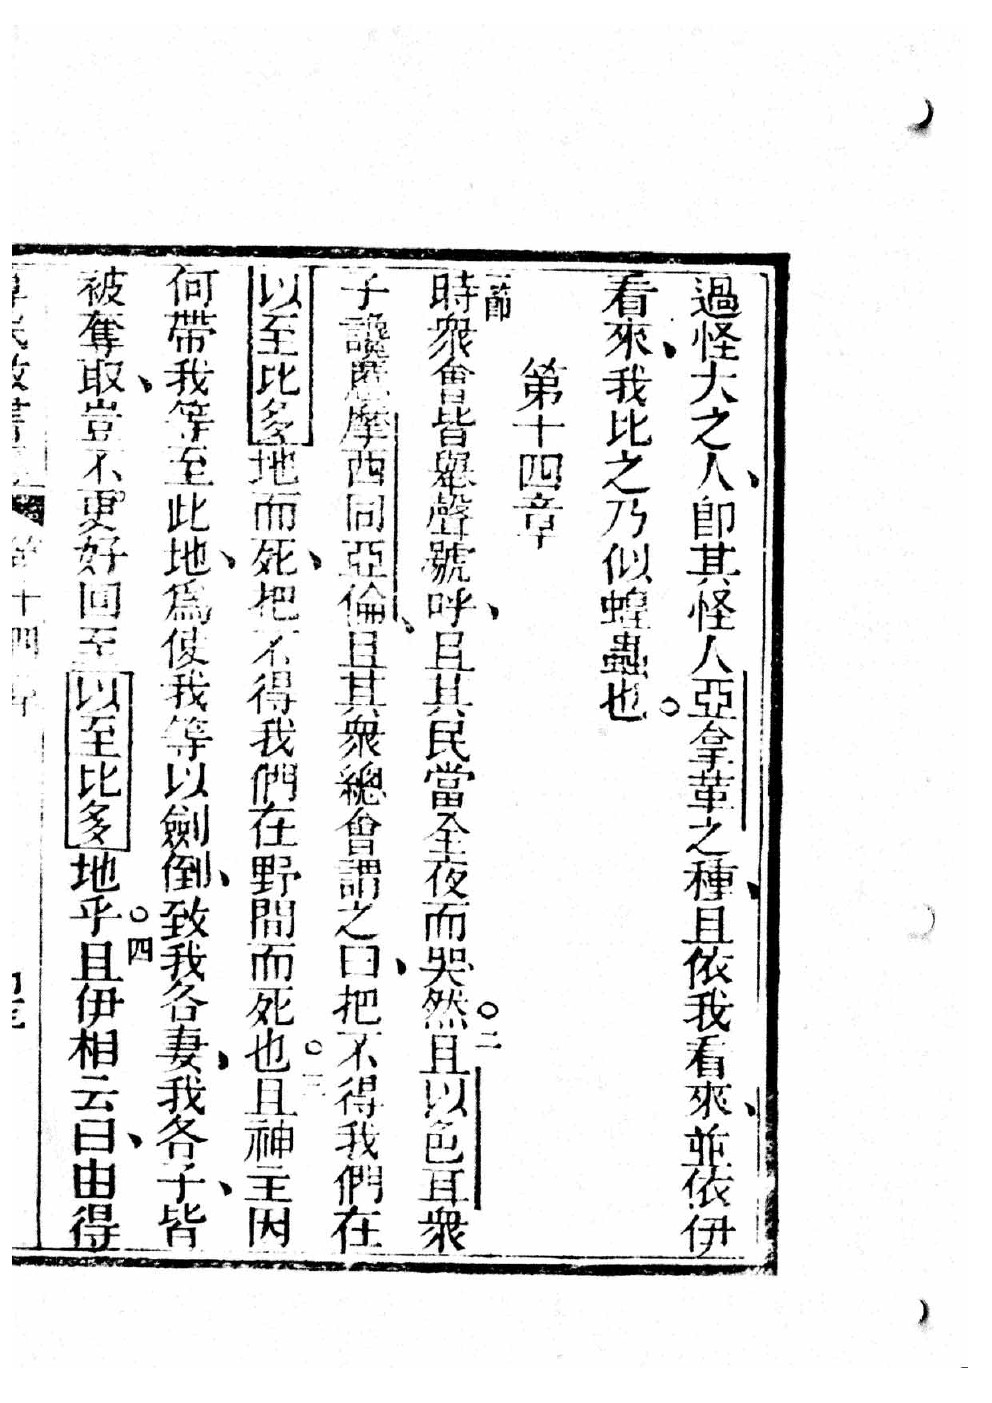 過怪大之人、卽其怪人亞拿革之種、且依我看來、並依伊
看來、我比之乃似蝗蟲也。
第十四章
一節時衆會皆舉聲號呼、且其民當全夜而哭。二然且以色耳衆
子讒讟摩西同亞倫、且其衆總會謂之曰、把不得我們在
以至比多地而死、把不得我們在野間而死也。三且神主因
何帶我等至此地、爲使我等以劍倒、致我各妻、我各子、皆
被奪取、豈不更好回至以至比多地乎。四且伊相云曰、由得
第十四章